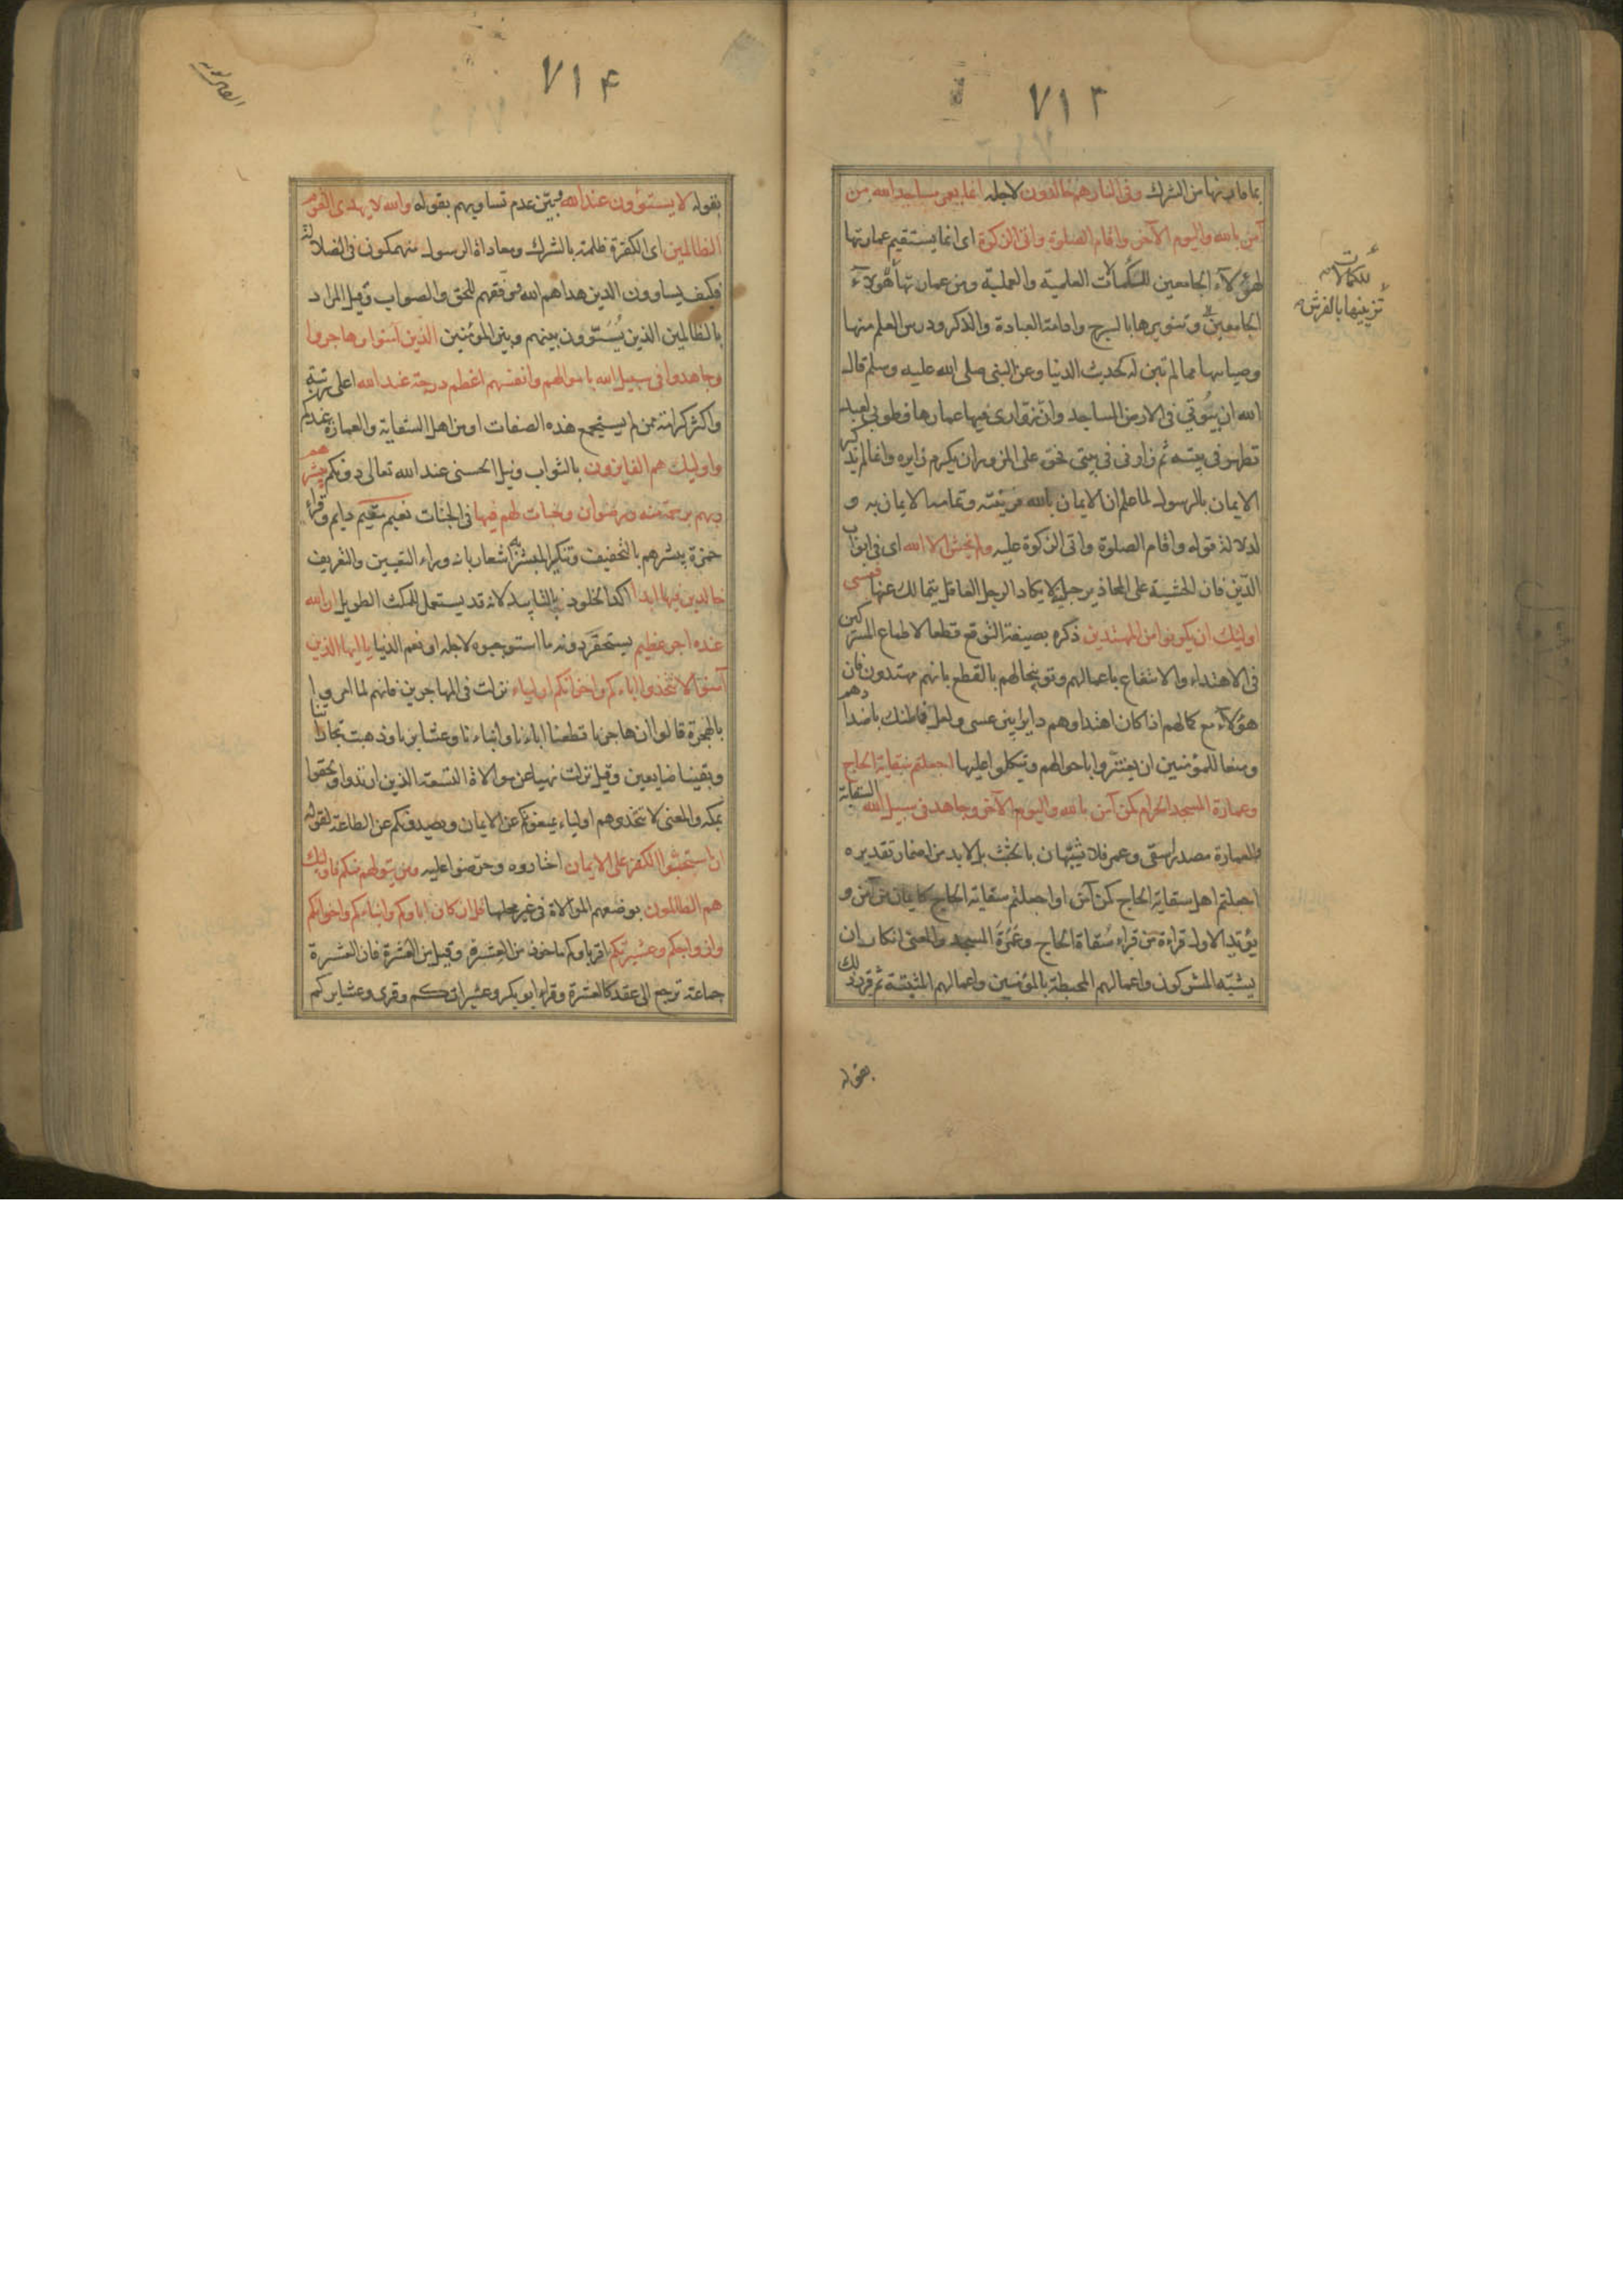 ٧١٣
بما قارنها من الشرك وفى النار هم خالدون لاجله انما يعمر مساجد الله من
آمن بالله واليوم الآخر واقام الصلوة واتى الزكوة اى انما يستقيم عمارتها
لهؤلاء الجامعين للكمالات العلمية والعملية ومن عمارتها هؤلاء
الجامعين وتنويرها بالسرج وادامة العبادة والذكر ودرس العلم منها
وصيانتها مما لم تبن له كحديث الدنيا وعن النبى صلى الله عليه وسلم قال
الله ان بيوتى فى الارض المساجد وان زوارى فيها عمارها فطوبى لعبد
تطهر فى بيته ثم زارنى فى بيتى فحق على المزور ان يكرم زايره وانما لم يذكر
الايمان بالرسول لما علم ان الايمان بالله قرينته وتمامه الايمان به و
لدلالة قوله واقام الصلوة واتى الزكوة عليه ولم يخش الا الله اى فى ابواب
الدين فان الخشية على المحاذير جبلية لا يكاد الرجل العاقل يتمالك عنها فعسى
اوليك ان يكونوا من المهتدين ذكره بصيغة التوقع قطعا لاطماع المشركين
فى الاهتداء والانتفاع باعمالهم وتوبيخا لهم بالقطع بانهم مهتدون فان
هؤلاء مع كمالهم اذا كان اهتداوهم دايرا بين عسى ولعل فما ظنك باضدادهم
ومنعا للمؤمنين ان يغتروا باحوالهم ويتكلوا عليها اجعلتم سقاية الحاج
وعمارة المسجد الحرام كمن آمن بالله واليوم الآخر وجاهد فى سبيل الله السقاية
والعمارة مصدر اسقى وعمر فلا تشبهان بالجثث بل لا بد من اضمار تقديره
اجعلتم اهل سقاية الحاج كمن آمن او اجعلتم سقاية الحاج كايمان من آمن و
يؤيد الاول قراءة من قراء سقاة الحاج وعمرة المسجد والمعنى انكار ان
يشبه المشركون واعمالهم المحبطة بالمؤمنين واعمالهم المثبتة ثم قرر ذلك
للكمالات
تزيينها بالفرش
بقوله
٧١۴
بقوله لا يستوون عند الله وبين عدم تساويهم بقوله والله لا يهدى القوم
الظالمين اى الكفرة ظلمة بالشرك ومعاداة الرسول منهمكون فى الضلالة
فكيف يساوون الذين هداهم الله ووفقهم للحق والصواب وقيل المراد
بالظالمين الذين يسوون بينهم وبين المؤمنين الذين آمنوا وهاجروا
وجاهدوا فى سبيل الله باموالهم وانفسهم اعظم درجة عند الله اعلى رتبة
واكثر كرامة ممن لم يستجمع هذه الصفات او من اهل السقاية والعمارة عندكم
واوليك هم الفايزون بالثواب ونيل الحسنى عند الله تعالى دونكم يبشرهم
ربهم برحمة منه ورضوان وجنات لهم فيها فى الجنات نعيم مقيم دايم وقراء
حمزة يبشرهم بالتخفيف وتنكير المبشر به اشعار بانه وراء التعيين والتعريف
خالدين فيها ابدا اكد الخلود بالتابيد لانه قد يستعمل للمكث الطويل ان الله
عنده اجر عظيم يستحقر دونه ما استوجبوه لاجله او نعم الدنيا يا ايها الذين
آمنوا لا تتخذوا اباءكم واخوانكم اولياء نزلت فى المهاجرين فانهم لما امروا
بالهجرة قالوا ان هاجرنا قطعنا اباءنا وابناءنا وعشايرنا وذهبت تجارتنا
وبقينا ضايعين وقيل نزلت نهيا عن موالاة التسعة الذين ارتدوا ولحقوا
بمكة والمعنى لا تتخذوهم اولياء يمنعونكم عن الايمان ويصدونكم عن الطاعة لقوله
ان استحبوا الكفر على الايمان اختاروه وحرصوا عليه ومن يتولهم منكم فاوليك
هم الظالمون بوضعهم الموالاة فى غير محلها قل ان كان اباوكم وابناءكم واخوانكم
وازواجكم وعشيرتكم اقرباوكم ماخوذ من العشرة وقيل من العشرة فان العشيرة
جماعة ترجع الى عقد كالعشرة وقراء ابو بكر وعشيراتكم وقرى وعشايركم